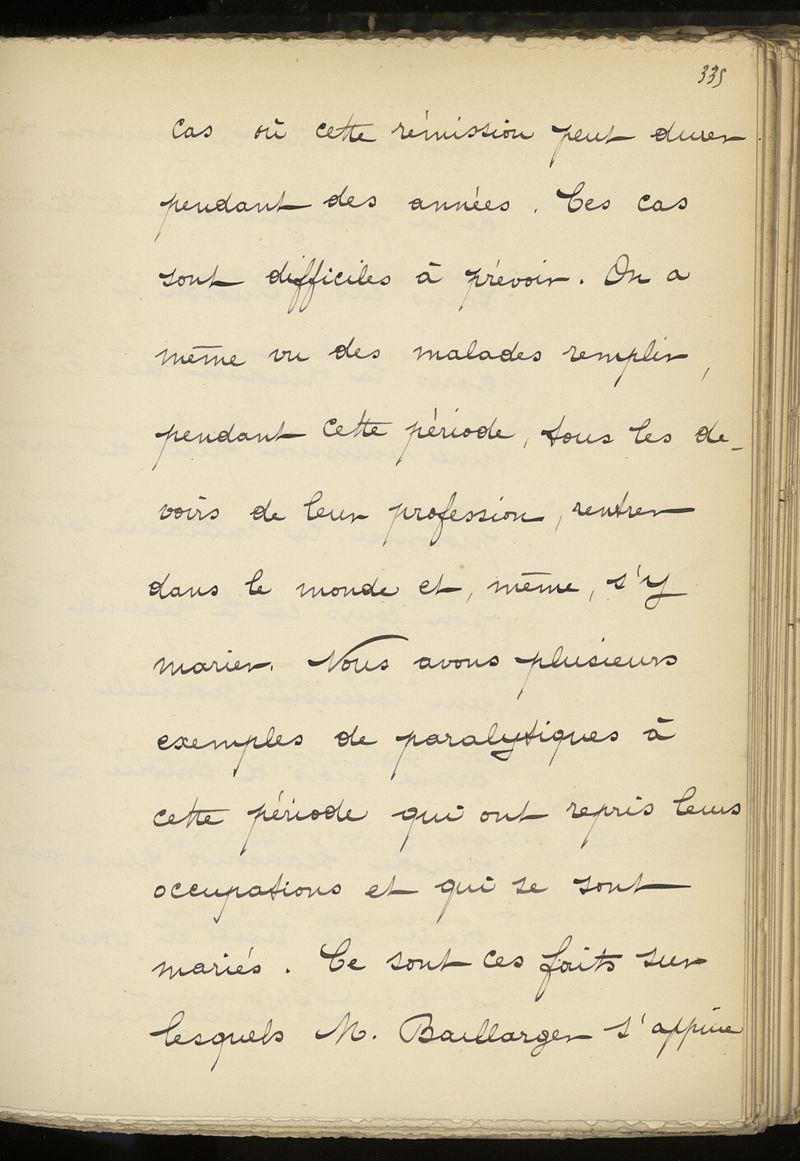 335
cas où cette rémission peut durer
pendant des années. Ces cas
sont difficiles à prévoir. On a
même vu des malades remplir,
pendant cette période, tous les de-
voirs de leur profession, rentrer
dans le monde et, même, s'y
marier. Nous avons plusieurs
exemples de paralytiques à
cette période qui ont repris leurs
occupations et qui se sont
mariés. Ce sont ces faits sur
lesquels M. Baillarger s'appuie